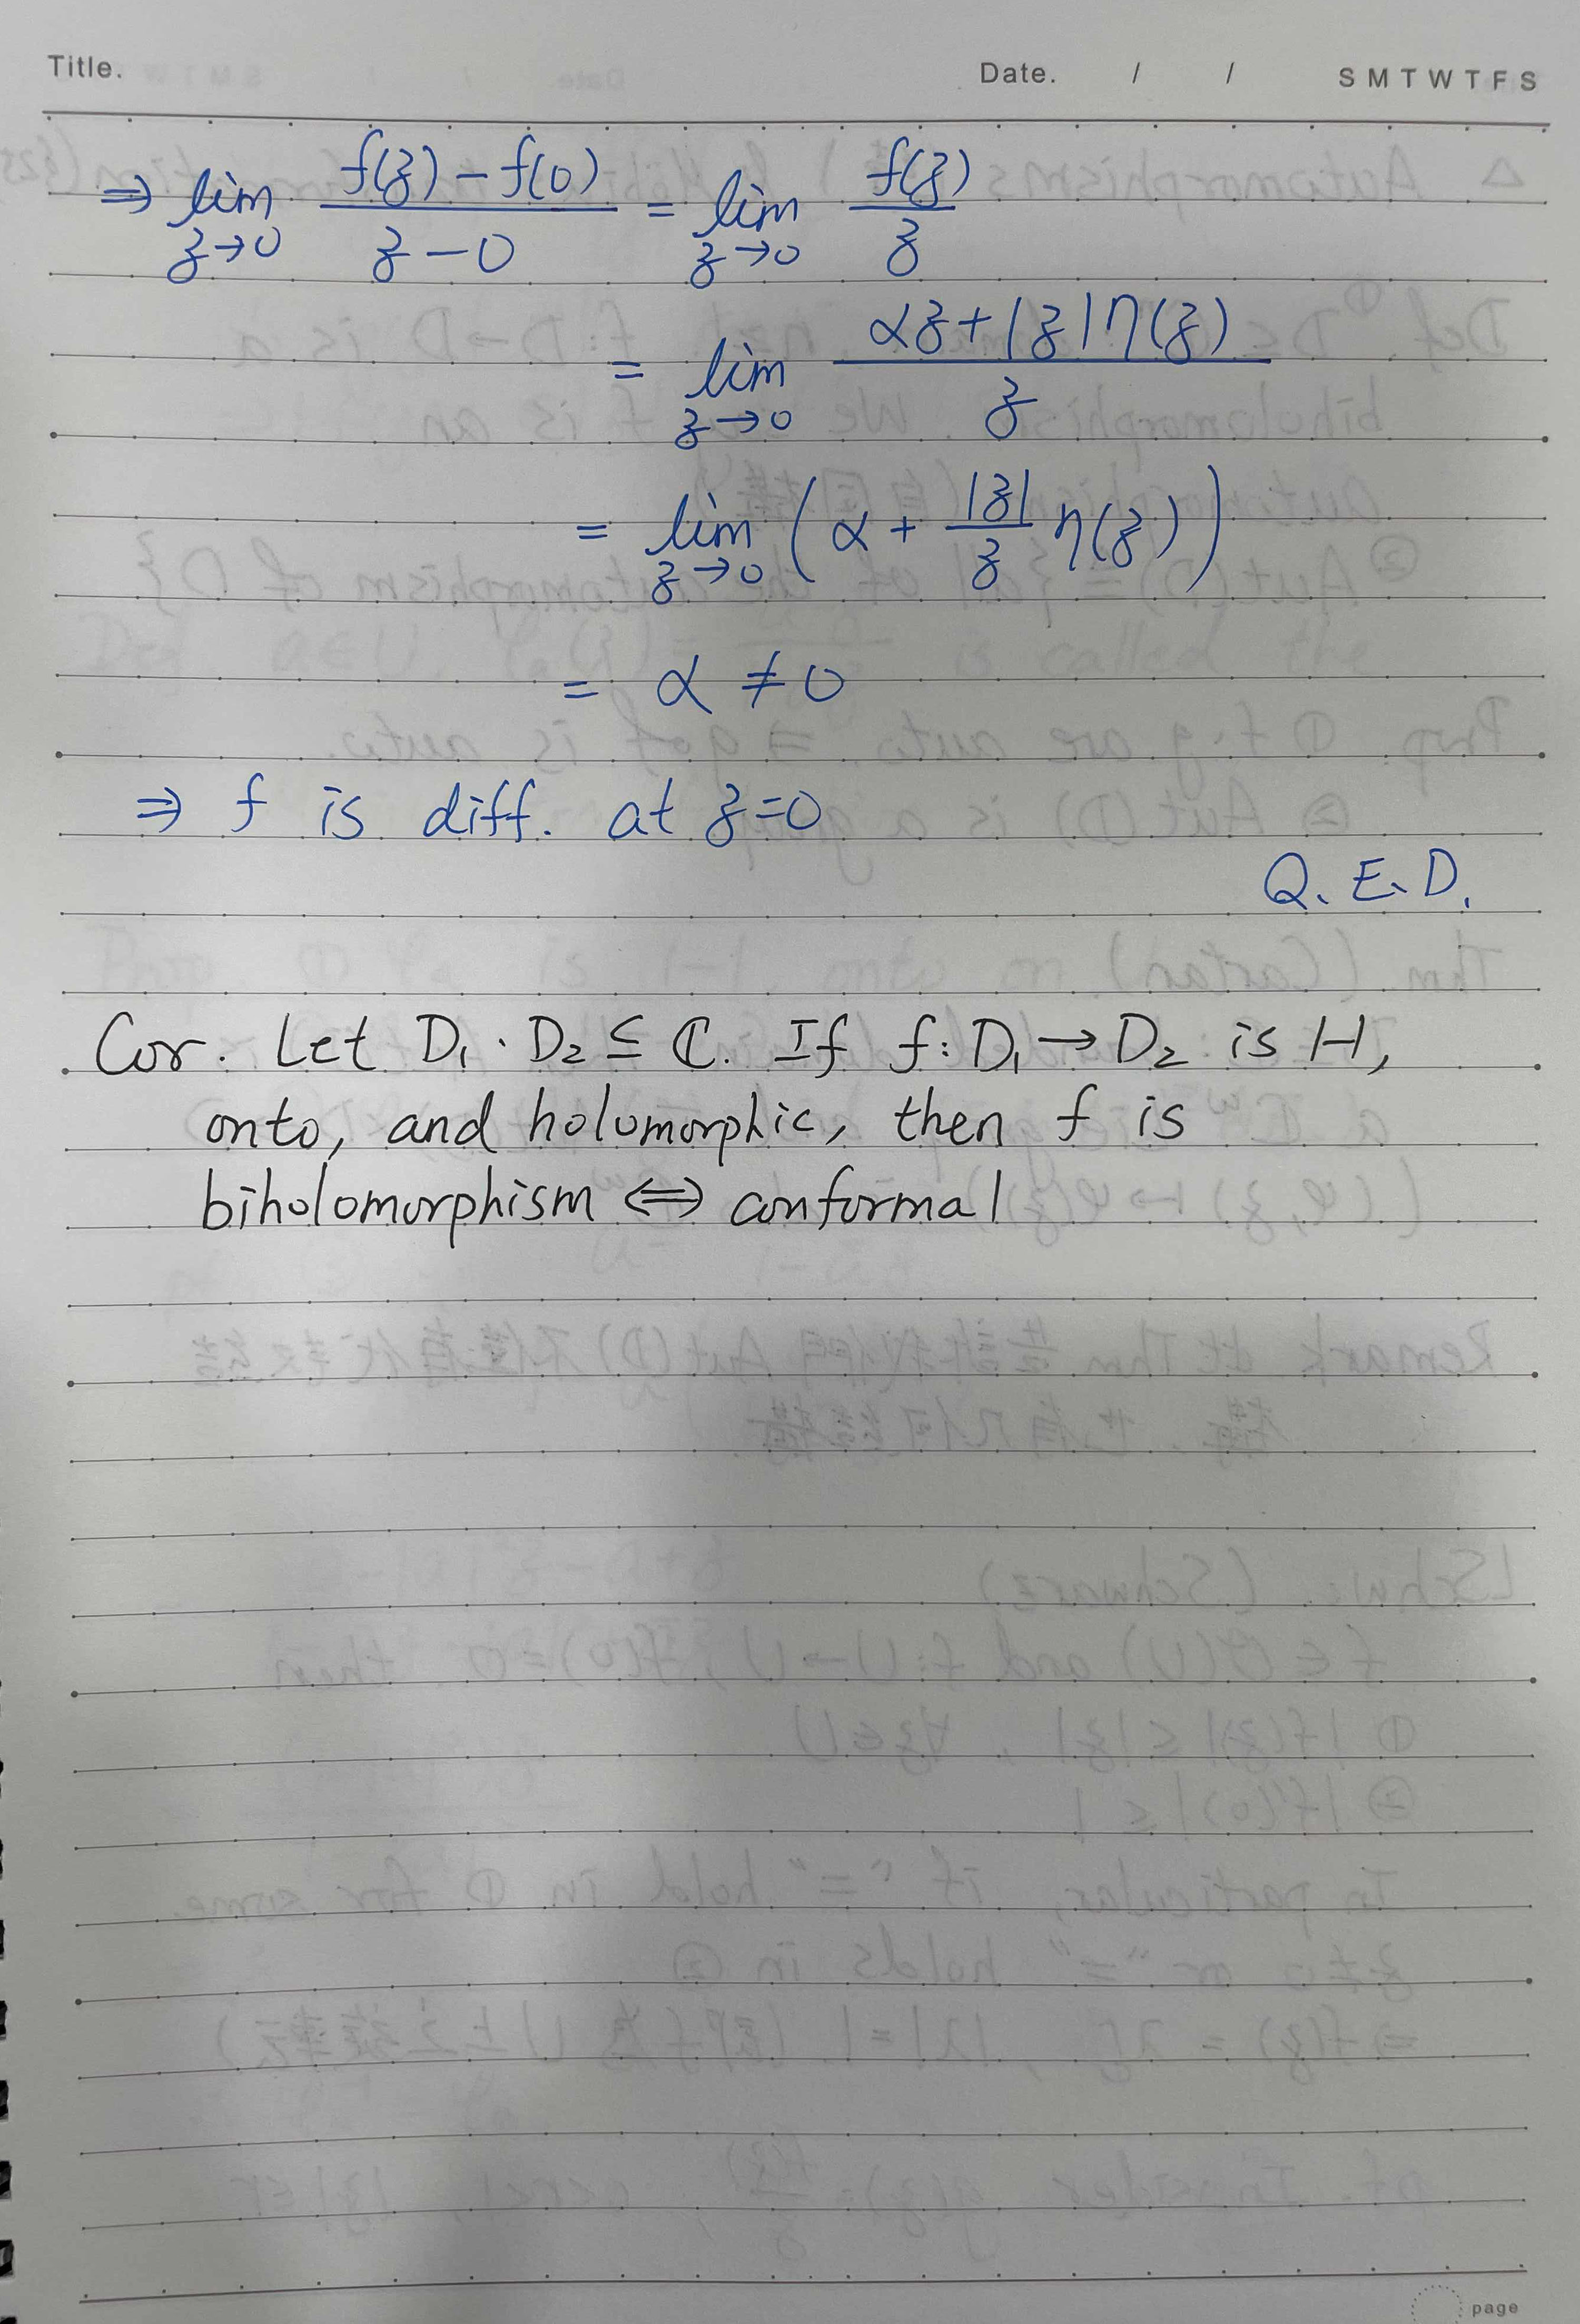 Title.
Date. / / S M T W T F S
⇒ lim_{z→0} (f(z) − f(0))/(z − 0) = lim_{z→0} f(z)/z
= lim_{z→0} (αz + |z|η(z))/z
= lim_{z→0} (α + |z|/z η(z))
= α ≠ 0
⇒ f is diff. at z=0
Q.E.D.
Cor. Let D₁, D₂ ⊆ ℂ. If f: D₁→D₂ is 1-1,
onto, and holomorphic, then f is
biholomorphism ⇔ conformal
page